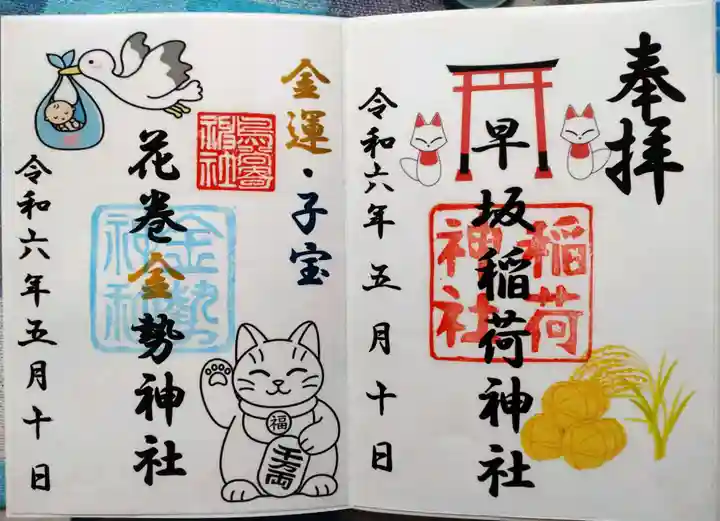 奉拝
早坂稲荷神社
稲荷
神社
令和六年五月十日
金運・子宝
花巻金勢神社
金勢
神社
令和六年五月十日
福
千万両